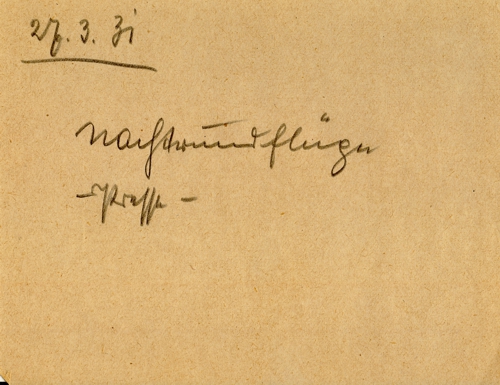 27. 3. 31
Nachtrundflüge
- Presse -